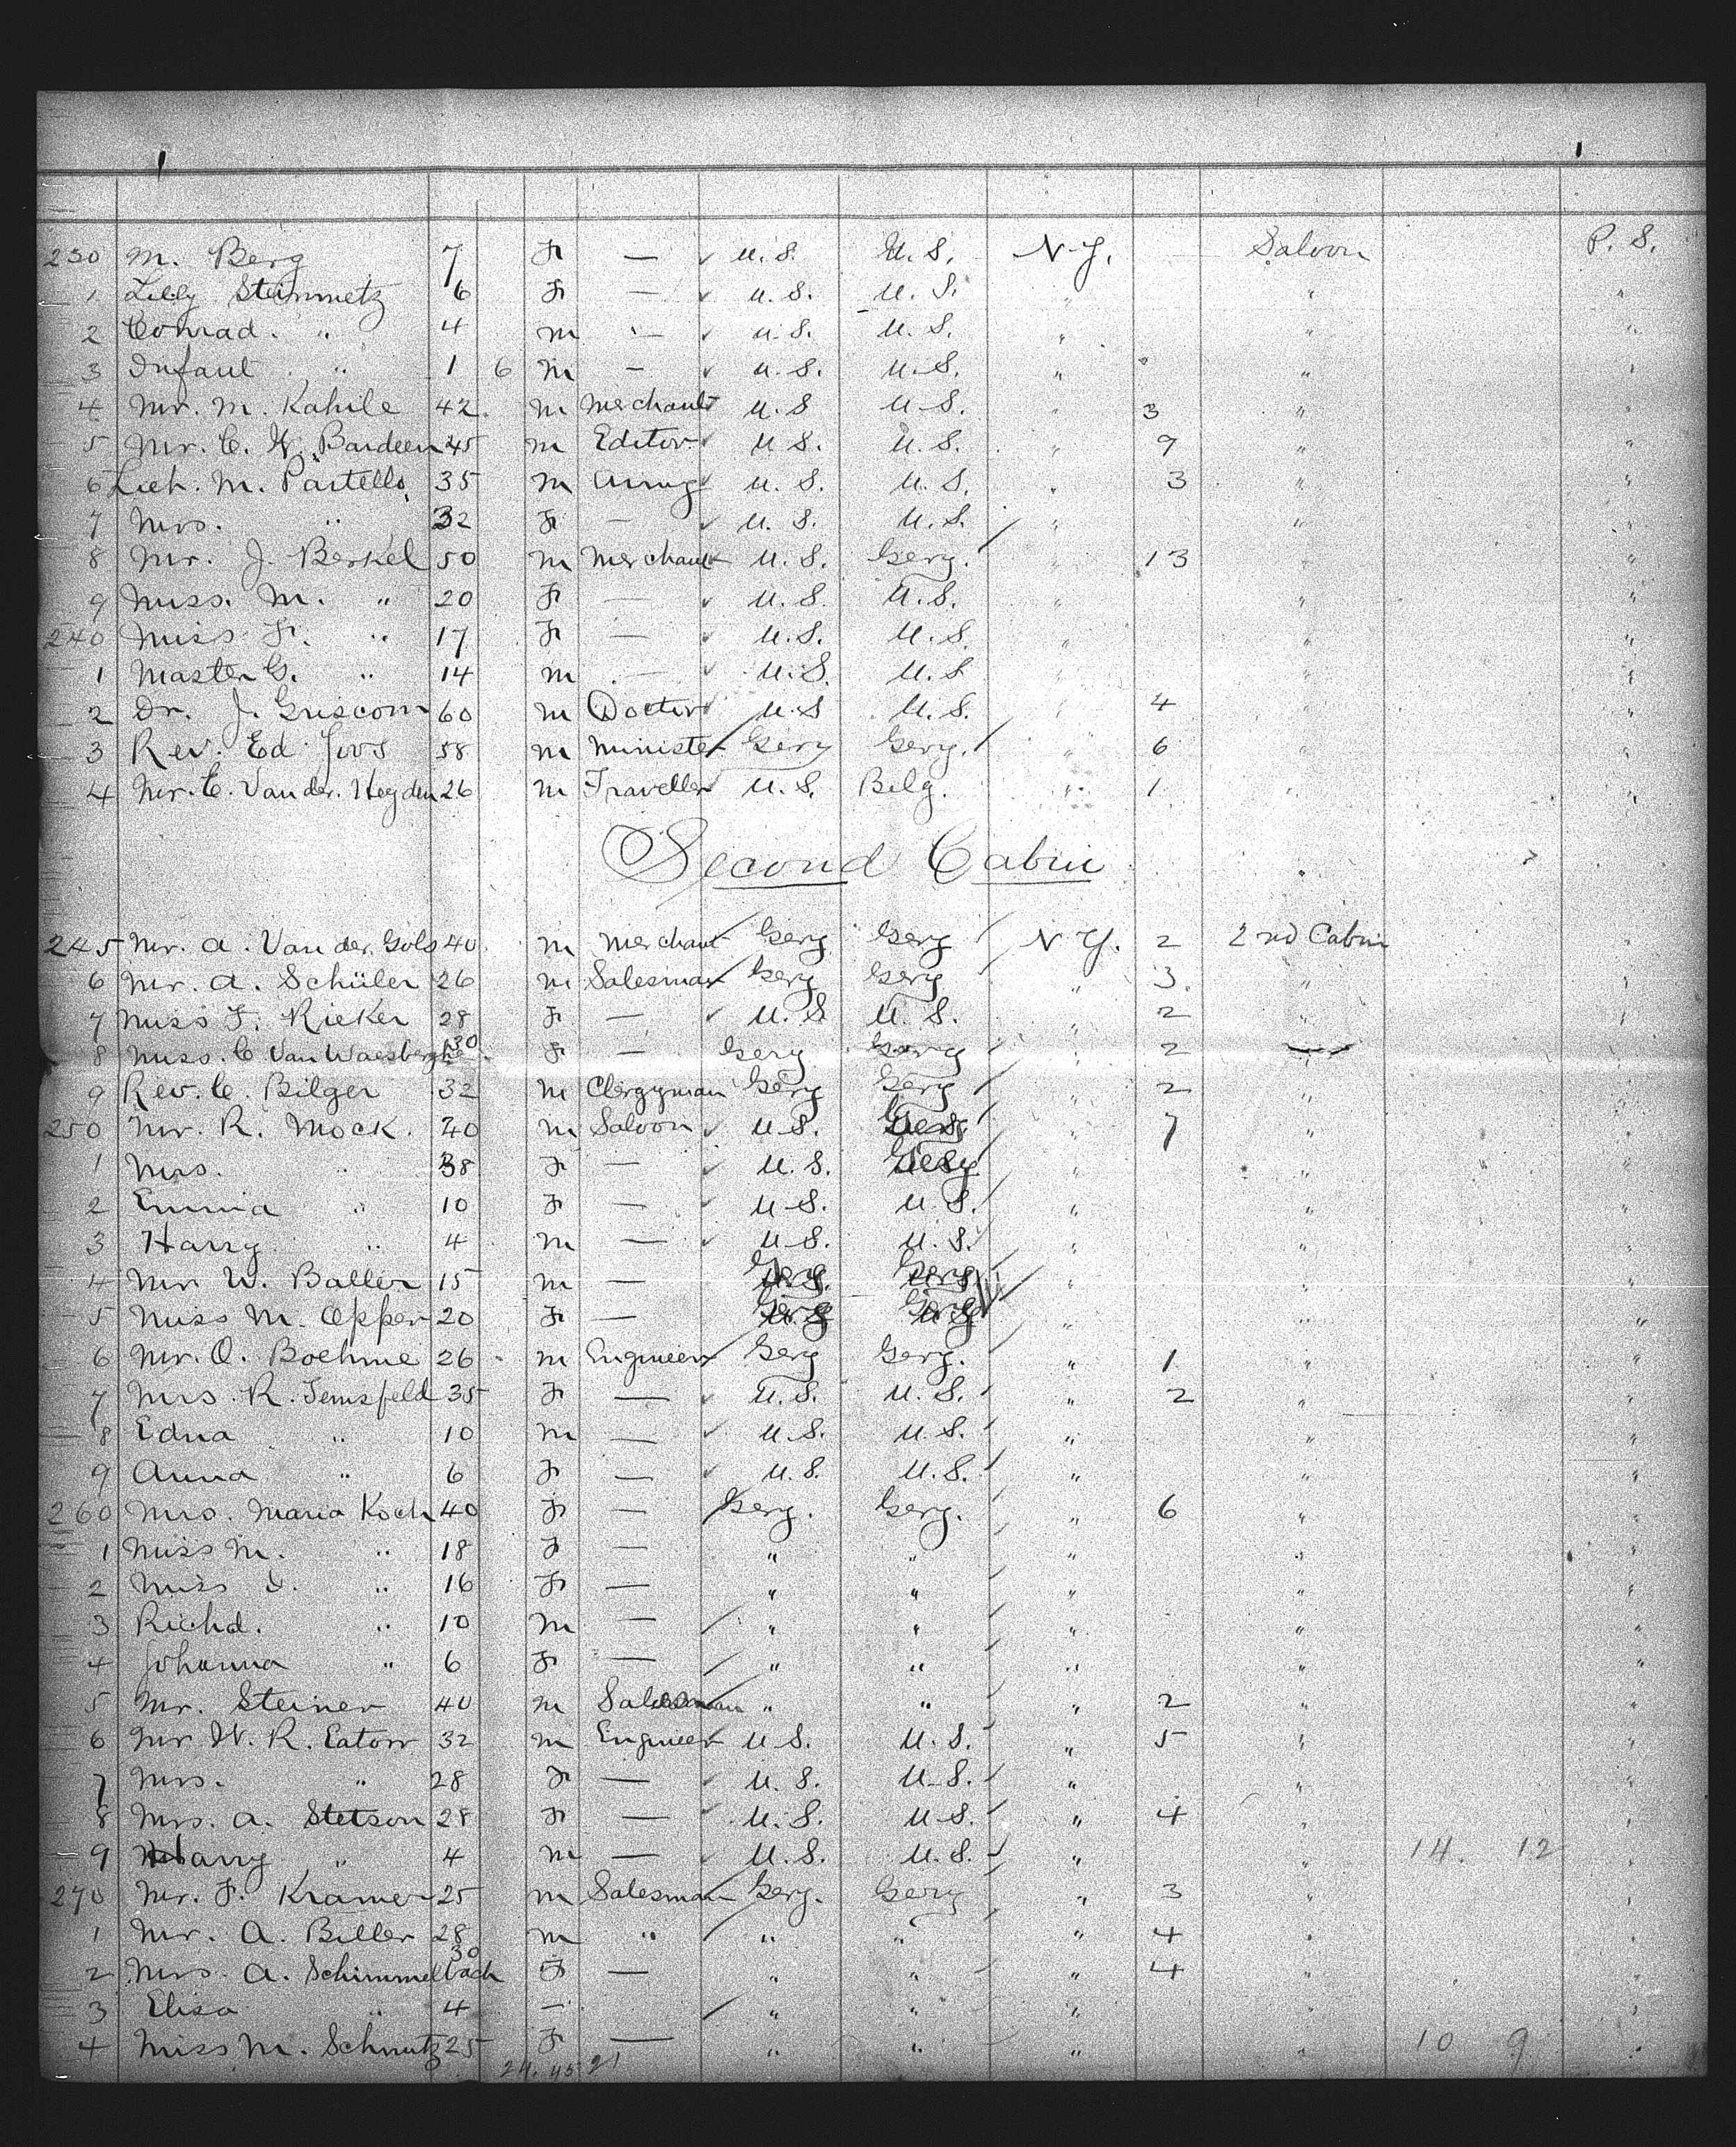 230 M. Berg 7 F — U.S. U.S. N.Y. Saloon P.S.
1 Lilly Steinmetz 6 F — U.S. U.S. " " "
2 Conrad " 4 m — U.S. U.S. " " "
3 Infant " 1 6 m — U.S. U.S. " " "
4 Mr. M. Kahile 42 m Merchant U.S U.S. " 3 " "
5 Mr. C. W. Bardeen 45 m Editor U.S. U.S. " 9 " "
6 Lieh. M. Partello 35 m Army U.S. U.S. " 3 " "
7 Mrs. " 32 F — U.S. U.S. " " "
8 Mr. J. Berkel 50 m Merchant U.S. Gery. " 13 " "
9 Miss. M. " 20 F — U.S. U.S. " " "
240 Miss F. " 17 F — U.S. U.S. " " "
1 Master G. " 14 m — U.S. U.S " " "
2 Dr. J. Griscom 60 m Doctor U.S U.S. " 4 " "
3 Rev. Ed Joos 58 m Minister Gery Gery. " 6 " "
4 Mr. C. Van der Heyden 26 m Traveller U.S. Belg. " 1 " "
Second Cabin
245 Mr. A. Van der Gols 40 m Merchant Gery Gery N.Y. 2 2nd Cabin "
6 Mr. A. Schüler 26 m Salesman Gery Gery " 3 " "
7 Miss F. Rieker 28 F — U.S U.S. " 2 " "
8 Miss. C Van Waesberghe 30 F — Gery Gery " 2 " "
9 Rev. C. Bilger 32 m Clergyman Gery Gery " 2 " "
250 Mr. R. Mock. 40 m Saloon U.S. Gery " 7 " "
1 Mrs. " 38 F — U.S. Gery " " "
2 Emma " 10 F — U.S. U.S. " " "
3 Harry " 4 m — U.S. U.S. " " "
4 Mr W. Baller 15 m — Gery Gery " " "
5 Miss M. Opper 20 F — Gery Gery " " "
6 Mr. O. Boehme 26 m Engineer Gery Gery. " 1 " "
7 Mrs. R. Temsfeld 35 F — U.S. U.S. " 2 " "
8 Edna " 10 m — U.S. U.S. " " "
9 Anna " 6 F — U.S. U.S. " " "
260 Mrs. Maria Koch 40 F — Gery. Gery. " 6 " "
1 Miss M. " 18 F — " " " " "
2 Miss " 16 F — " " " " "
3 Richd. " 10 m — " " " " "
4 Johanna " 6 F — " " " " "
5 Mr. Steiner 40 m Salesman " " " 2 " "
6 Mr W. R. Eaton 32 m Engineer U.S. U.S. " 5 " "
7 Mrs. " 28 F — U.S. U.S. " " "
8 Mrs. A. Stetson 28 F — U.S. U.S. " 4 " "
9 Harry " 4 m — U.S. U.S. " 14. 12 "
270 Mr. F. Kramer 25 m Salesman Gery. Gery " 3 " "
1 Mr. A. Biller 28 m " " " " 4 " "
2 Mrs. A. Schimmelbach 30 F — " " " 4 " "
3 Elisa " 4 — " " " " "
4 Miss M. Schmutz 25 F — " " " " 10 9 "
24. 45 21